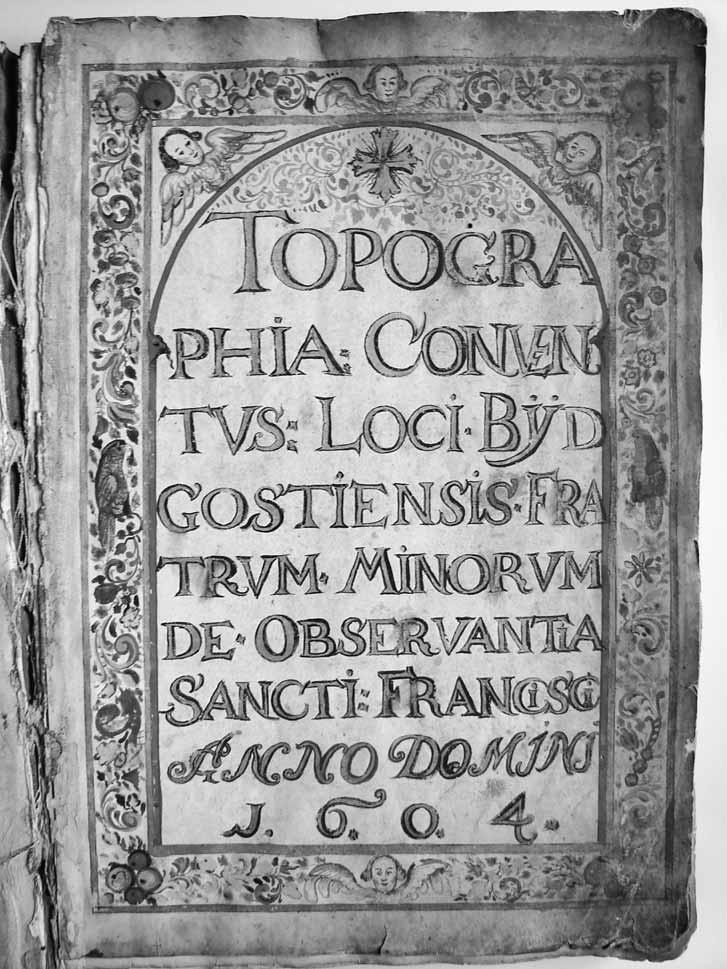 TOPOGRA
PHiA: CONVEN:
TVS: LOCi· BŸD
GOSTiENSiS· FRA
TRVM· MiNORVM
DE· OBSERVANTiA
SANCTi: FRANCiSCi
ANNO DOMINI
J. 6. 0. 4.